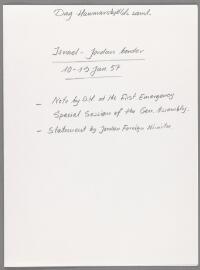 Dag Hammarskjölds saml.
Israel - Jordan border
10-19 Jan. 57
- Note by D.H. at the First Emergency
Special Session of the Gen. Assembly.
- Statement by Jordan Foreign Minister